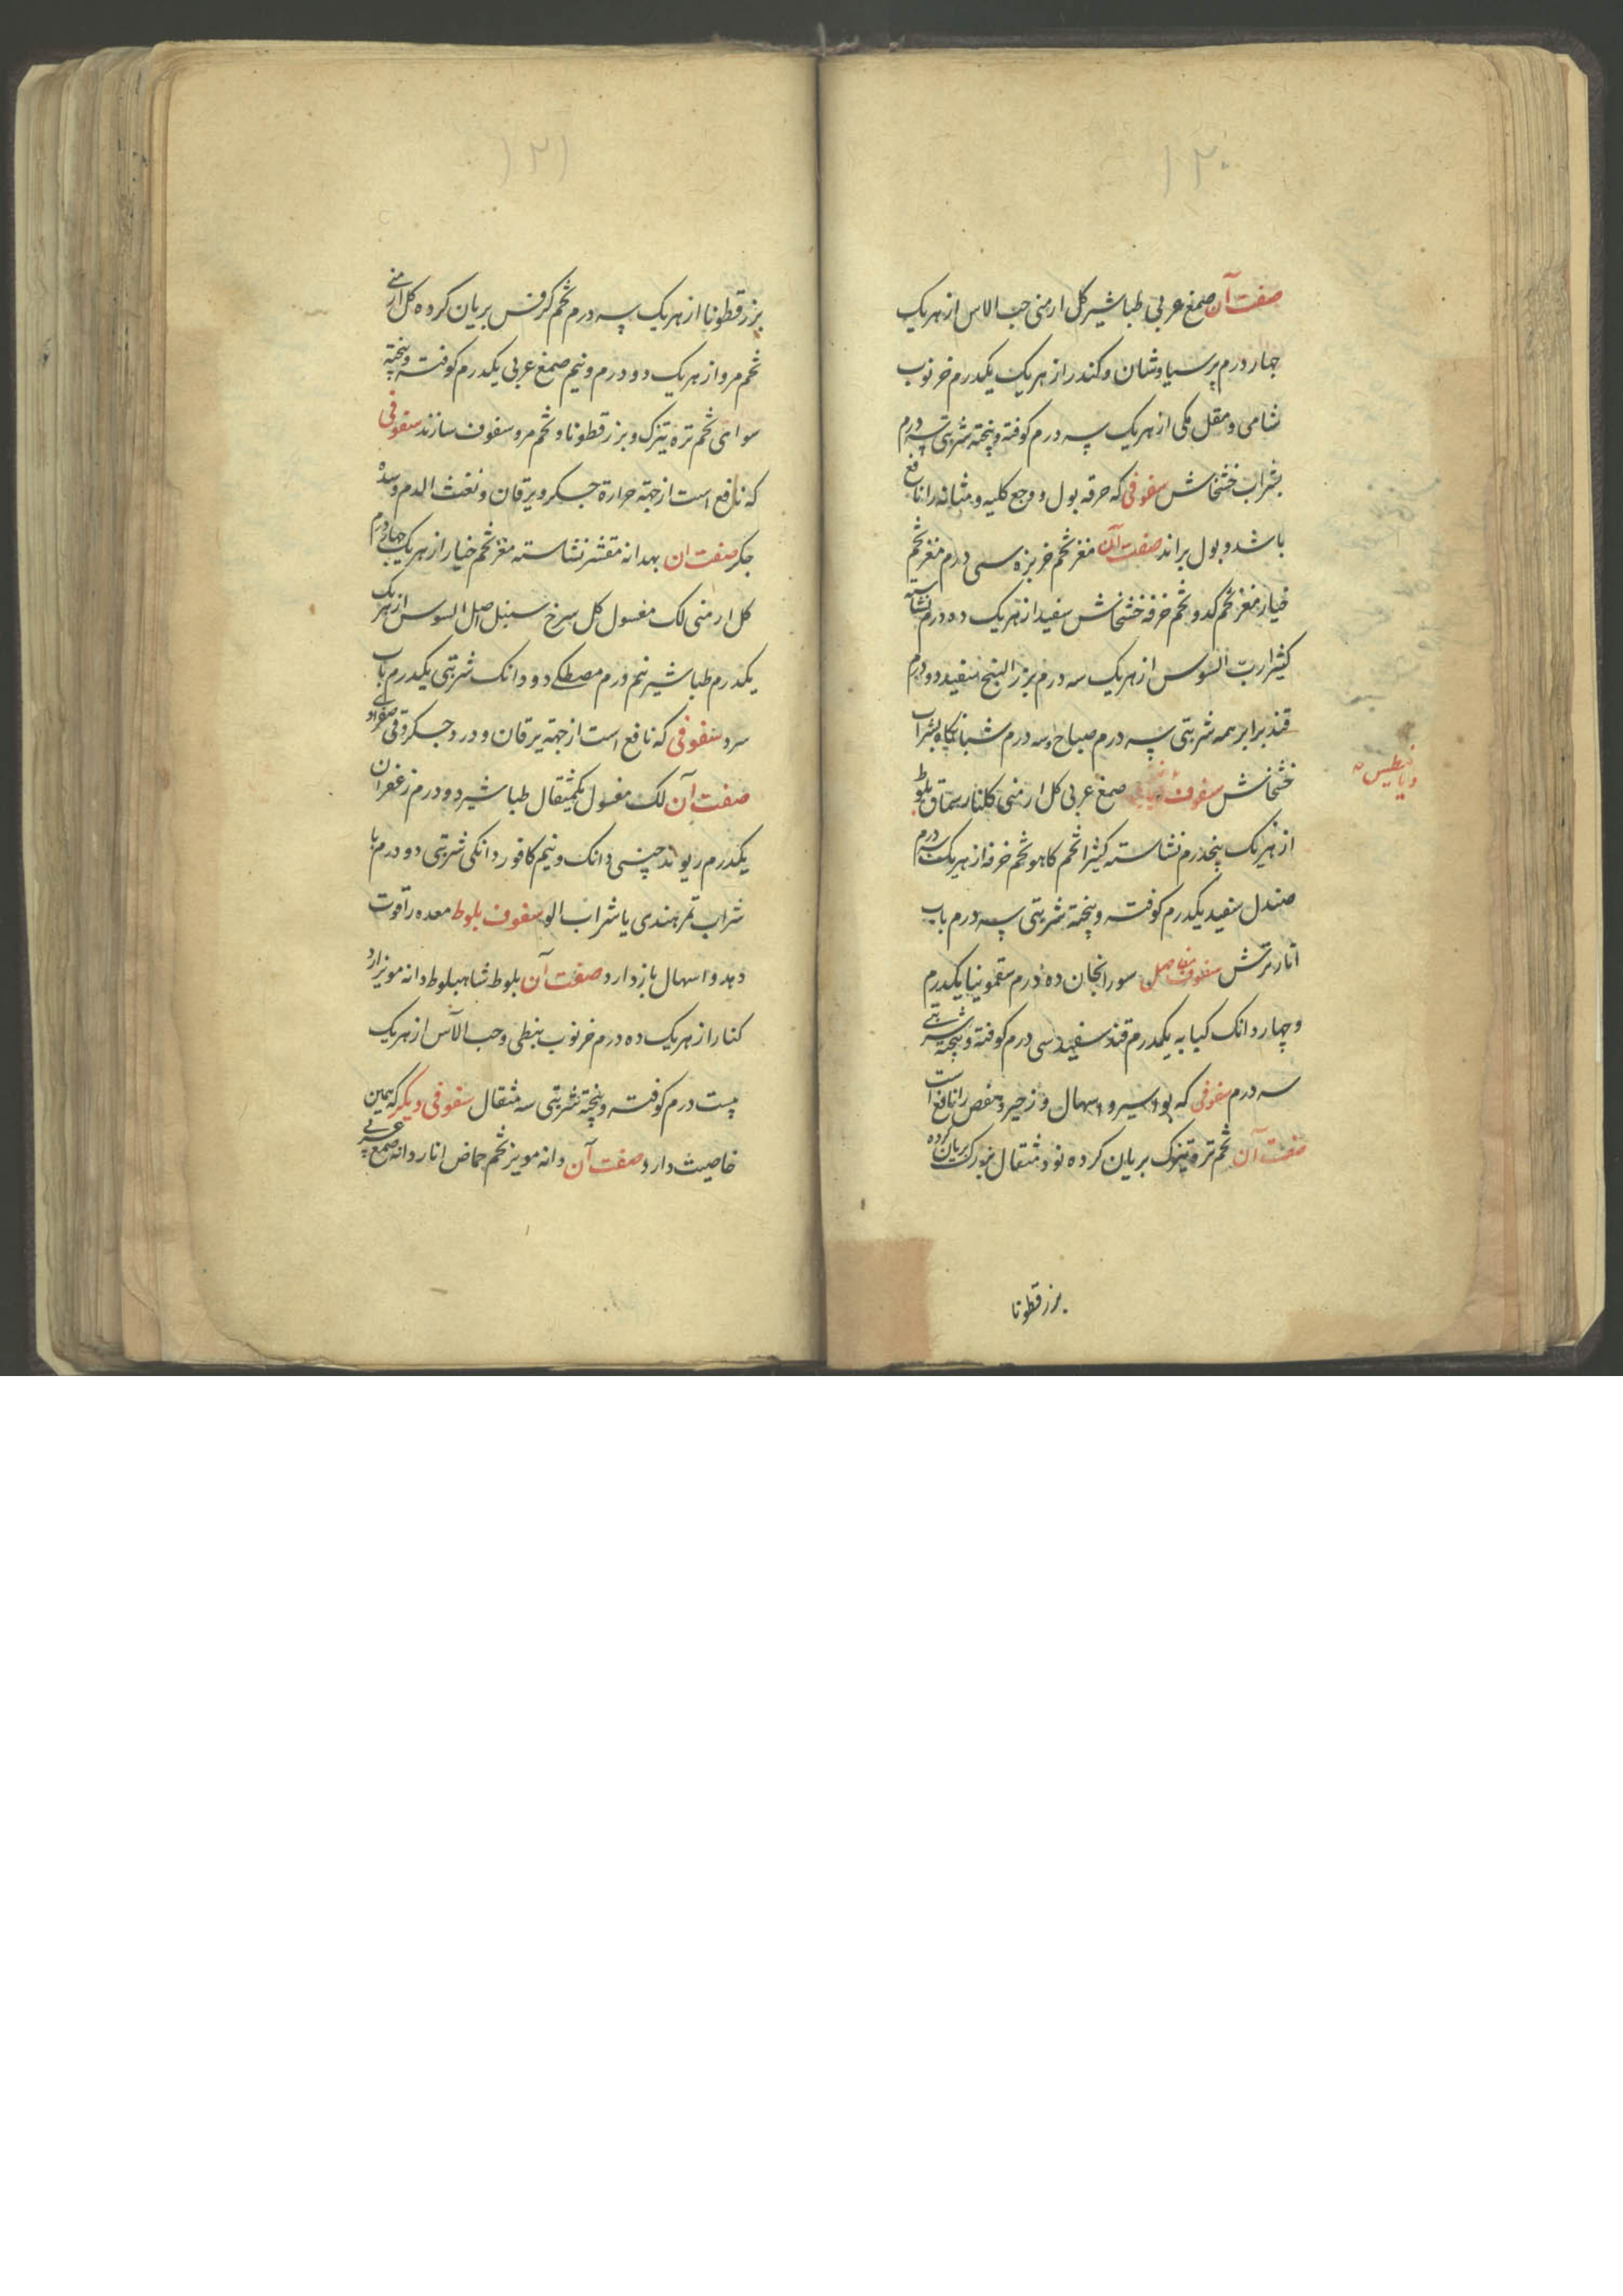 ۱۲۰
صفت آن صمغ عربی طباشیر کل ارمنی حب الاس از هر یک
چهار درم پرسیاوشان و کندر از هر یک یکدرم خرنوب
شامی و مقل مکی از هر یک سه درم کوفته و پخته شربتی سه درم
بشراب خشخاش سفوفی که حرقه بول و وجع کلیه و مثانه را نافع
باشد و بول براند صفت آن مغز تخم خربزه سی درم مغز تخم
خیار مغز تخم کدو تخم خرفه خشخاش سفید از هر یک ده درم نشاسته
کثیرا رب السوس از هر یک سه درم بزر البنج سفید دو درم
قند برابر همه شربتی سه درم صباح و سه درم شبانگاه بشراب
خشخاش سفوف صمغ عربی کل ارمنی کلنار سماق بلوط
دیابیطیس
از هر یک پنجدرم نشاسته کثیرا تخم کاهو تخم خرفه از هر یک سه درم
صندل سفید یکدرم کوفته و پخته شربتی سه درم باب
انار ترش سفوف مفاصل سورانجان ده درم سقمونیا یکدرم
و چهار دانک کبابه یکدرم قند سفید سی درم کوفته و پخته شربتی
سه درم سفوفی که بواسیر و اسهال و زحیر و مغص را نافع است
صفت آن تخم تره تیزک بریان کرده نود مثقال بریان کرده
بزر قطونا
۱۲۱
بزر قطونا از هر یک سه درم تخم کرفس بریان کرده کل ارمنی
تخم مرو از هر یک دو درم و نیم صمغ عربی یکدرم کوفته و پخته
سوای تخم تره تیزک و بزر قطونا و تخم مرو سفوف سازند سفوفی
که نافع است از جهة حرارة جکر و یرقان و نفث الدم و سده
جکر صفت ان بهدانه مقشر نشاسته مغز تخم خیار از هر یک چهار درم
کل ارمنی لک مغسول کل سرخ سنبل اصل السوس از هر یک
یکدرم طباشیر نیم درم مصطکی دو دانک شربتی یکدرم باب
سرد سفوفی که نافع است از جهة یرقان و درد جکر و قی صفراوی
صفت آن لک مغسول یکمثقال طباشیر دو درم زعفران
یکدرم ریوند چینی دانک و نیم کافور دانکی شربتی دو درم با
شراب تمر هندی یا شراب الو سفوف بلوط معده را قوت
دهد و اسهال باز دارد صفت آن بلوط شاهبلوط دانه مویز آرد
کنار از هر یک ده درم خرنوب نبطی و حب الآس از هر یک
بیست درم کوفته و پخته شربتی سه مثقال سفوفی دیکر که همین
خاصیت دارد صفت آن دانه مویز تخم حماض انار دانه صمغ عربی